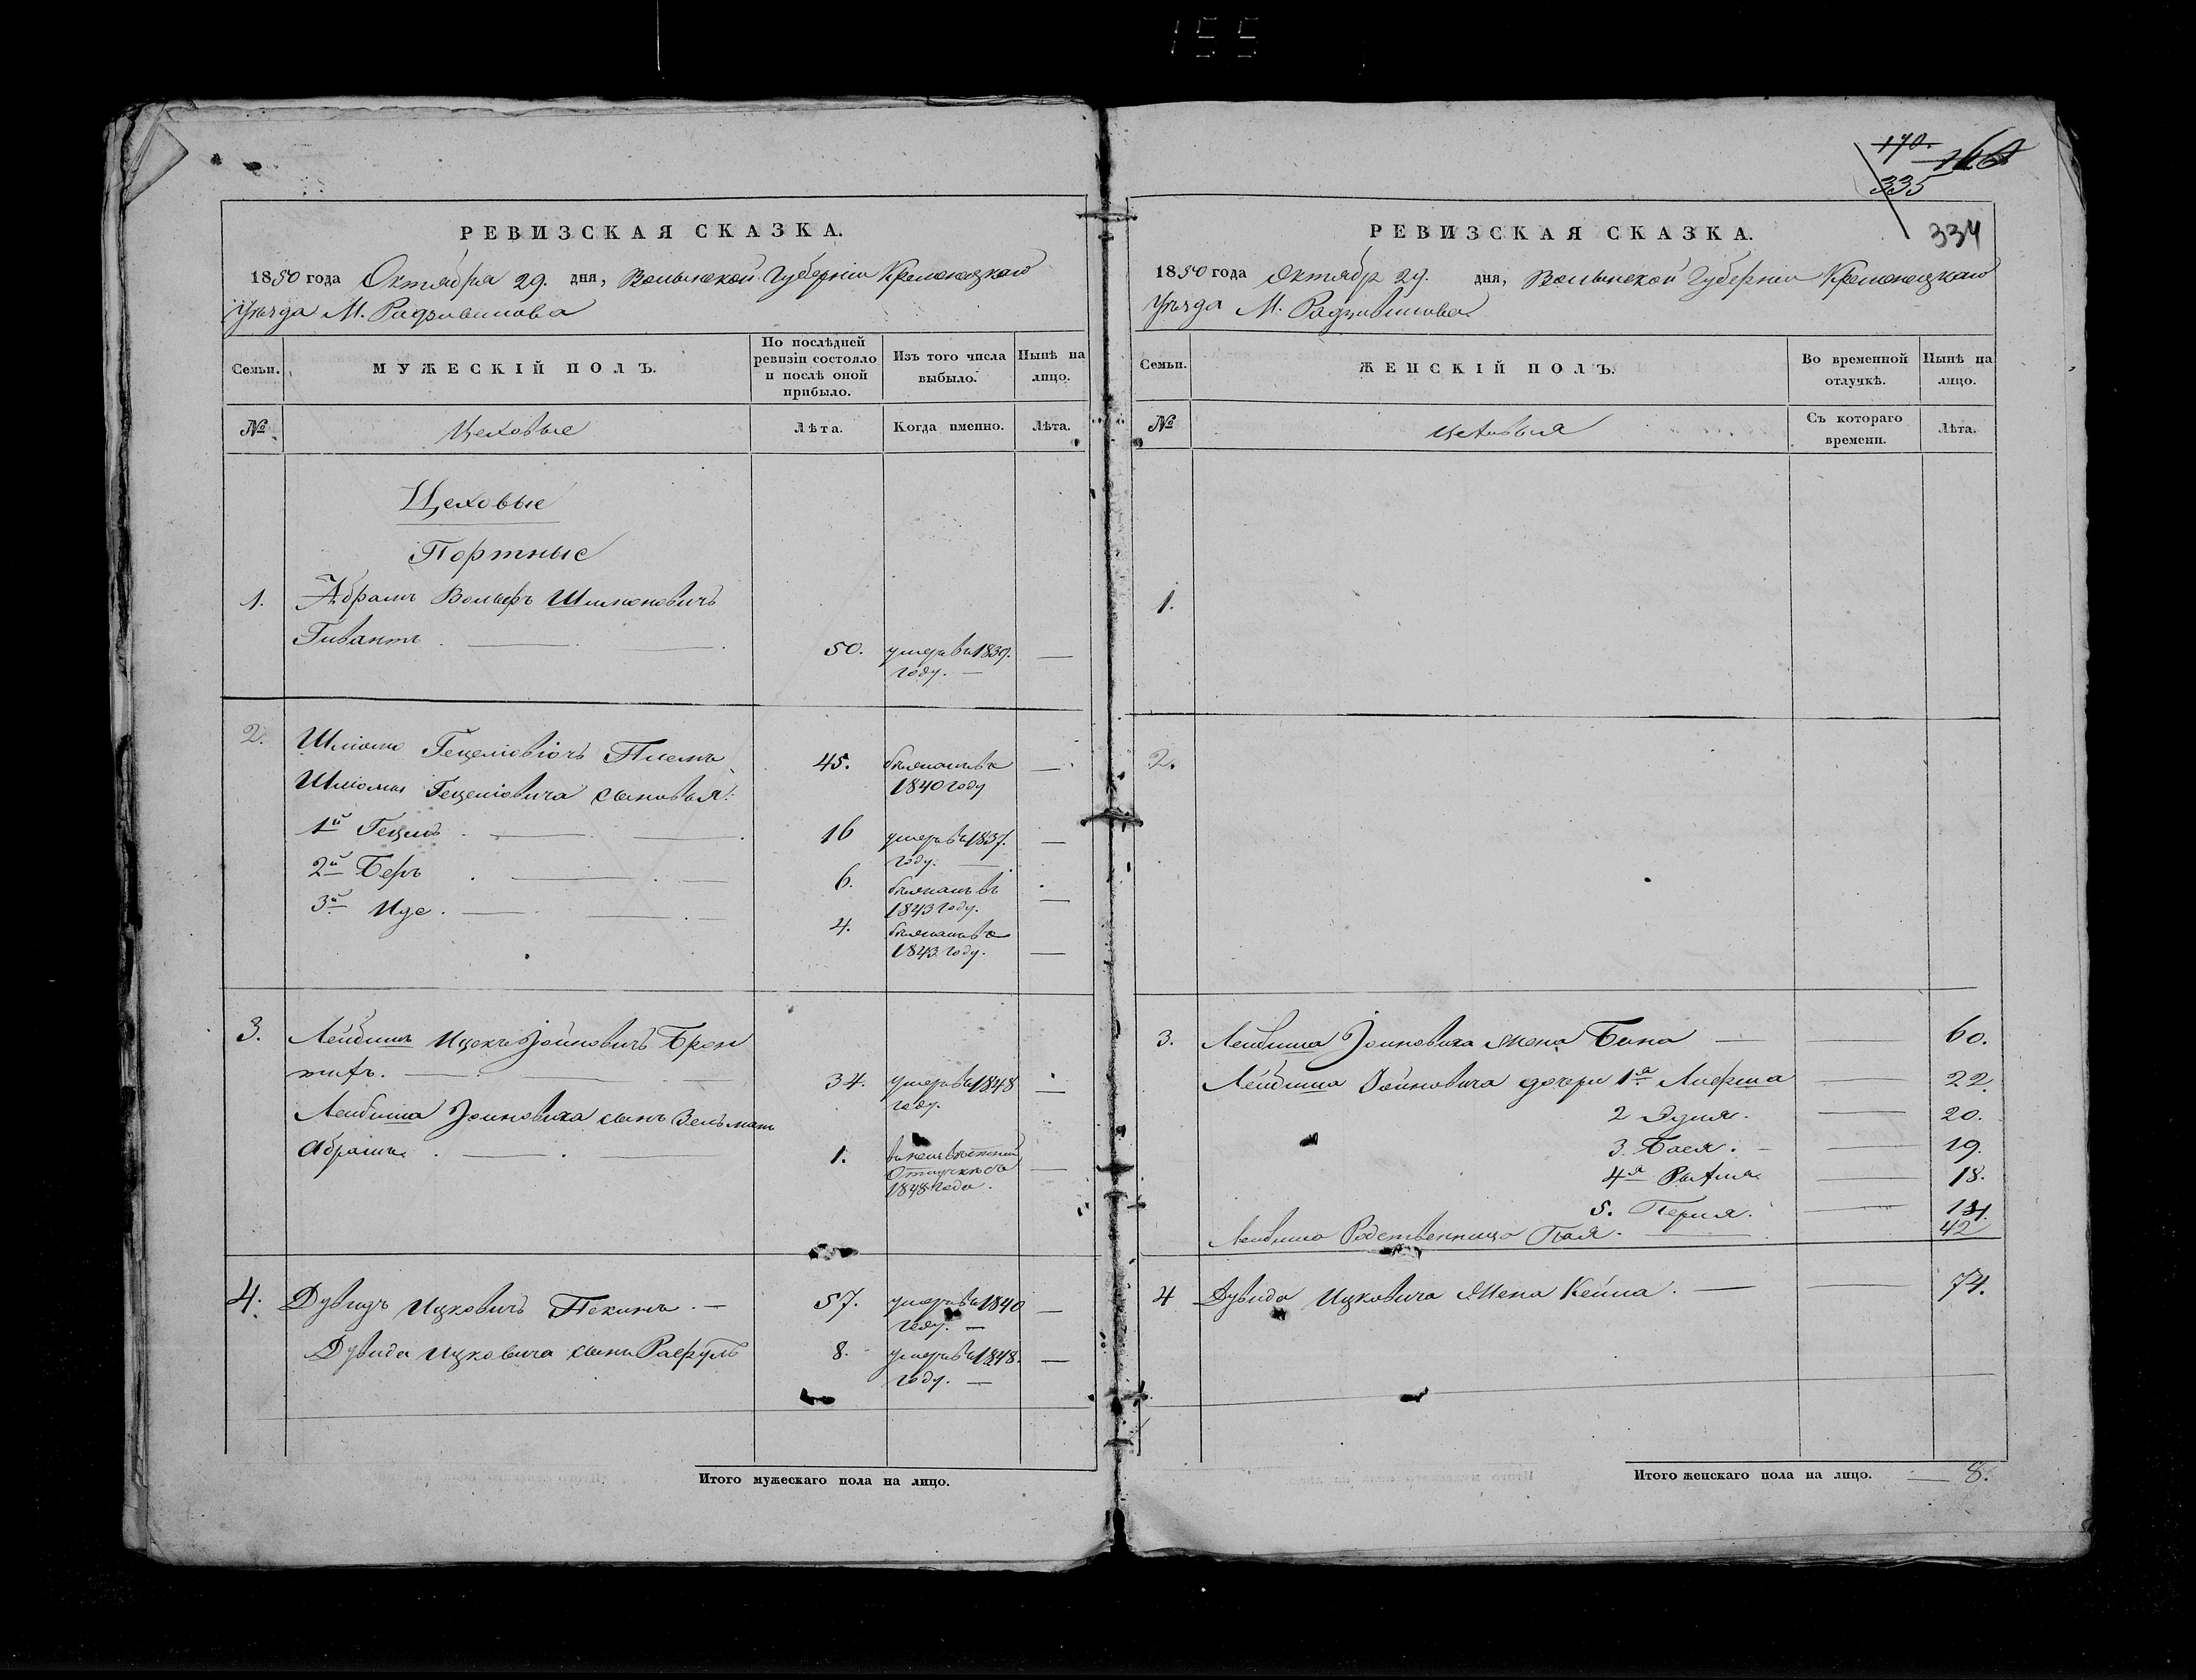 155
170.
166
335
334
РЕВИЗСКАЯ СКАЗКА.
1850 года Октября 29. дня, Волынской Губерніи Кременецкаго
Уѣзда М. Радзивилова
Семьи.
МУЖЕСКІЙ ПОЛЪ.
По послѣдней
ревизіи состояло
и послѣ оной
прибыло.
Изъ того числа
выбыло.
Нынѣ на
лицо.
№
Цеховые
Лѣта.
Когда именно.
Лѣта.
Цеховые
Портные
1. Абрамъ Вольфъ Шимоновичъ
Гивантъ 50. умеръ въ 1839.
году.
2. Шліома Гецеліовичъ 45.
1840 году
Шліомы Гецеліовича сыновья:
1й Гецель 16 умеръ въ 1837.
году.
2й Беръ 6.
1843 году.
3й Иде 4.
1843 году.
3. Лейбишъ Ицекъ Іойновичъ Брон
34. умеръ въ 1848
году.
Лейбиша Іойновича сынъ Зельманъ
Абрамъ 1.
отлучкѣ съ
1848 года.
4. Дувидъ Ицковичъ Пекинъ 57. умеръ въ 1840
году.
Дувида Ицковича сынъ Рафуль 8. умеръ въ 1848.
году.
Итого мужескаго пола на лицо.
РЕВИЗСКАЯ СКАЗКА.
1850 года Октября 29. дня, Волынской Губерніи Кременецкаго
Уѣзда М. Радзивилова
Семьи.
ЖЕНСКІЙ ПОЛЪ.
Во временной
отлучкѣ.
Нынѣ на
лицо.
№
Цеховыя
Съ котораго
времени.
Лѣта.
1.
2.
3. Лейбиша Іойновича жена Бина 60.
Лейбиша Іойновича дочери 1я 22.
2 Эдля. 20.
3. Бася. 19.
4я Рыхля 18.
5. Перля.
Лейбиша Родственница Пая. 42
4 Дувида Ицковича жена Кейла. 74.
Итого женскаго пола на лицо. 8.